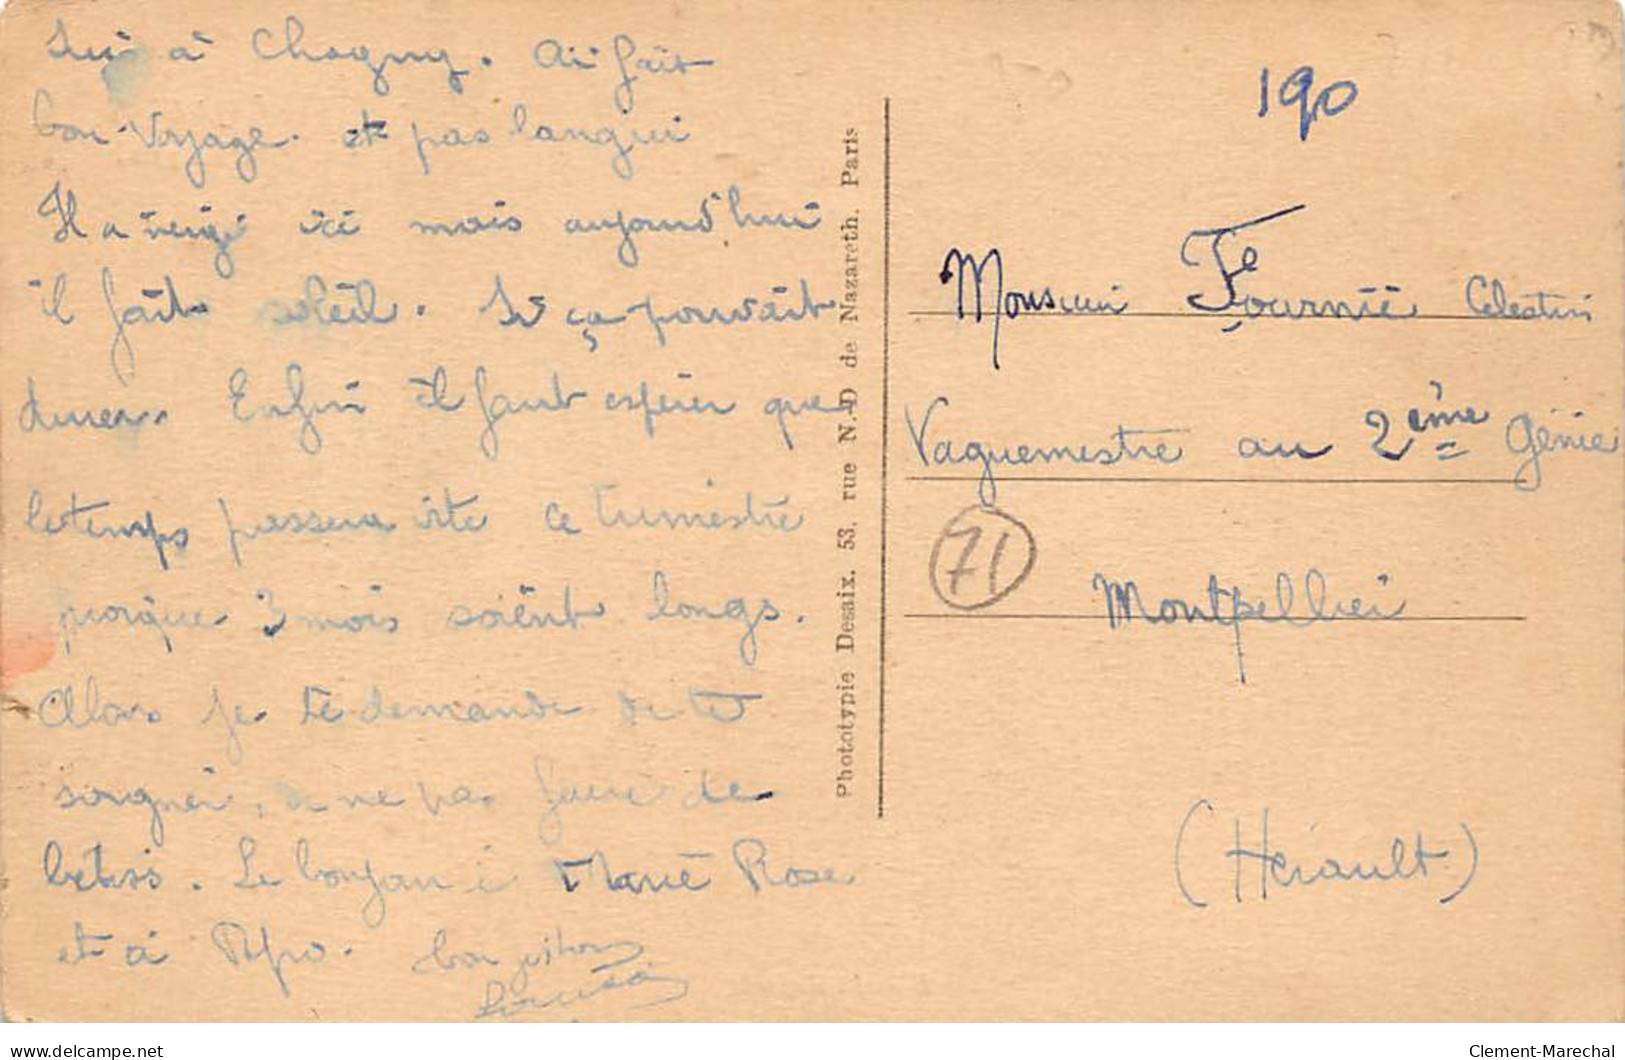 Suis à Chagny. Ai fait
bon voyage. et pas langui
Il a neigé ici mais aujourd'hui
il fait soleil. Si ça pouvait
durer. Enfin il faut espérer que
le temps passera vite ce trimestre
quoique 3 mois soient longs.
Alors je te demande de te
soigner, de ne pas faire de
betises. Le bonjour à Marie Rose
et à
bon
Phototypie Desaix. 53, rue N.-D de Nazareth. Paris
190
Monsieur Fournié Celestin
Vaguemestre au 2ème Génie
71
Montpellier
(Hérault)
delcampe.net
Clement-Marechal